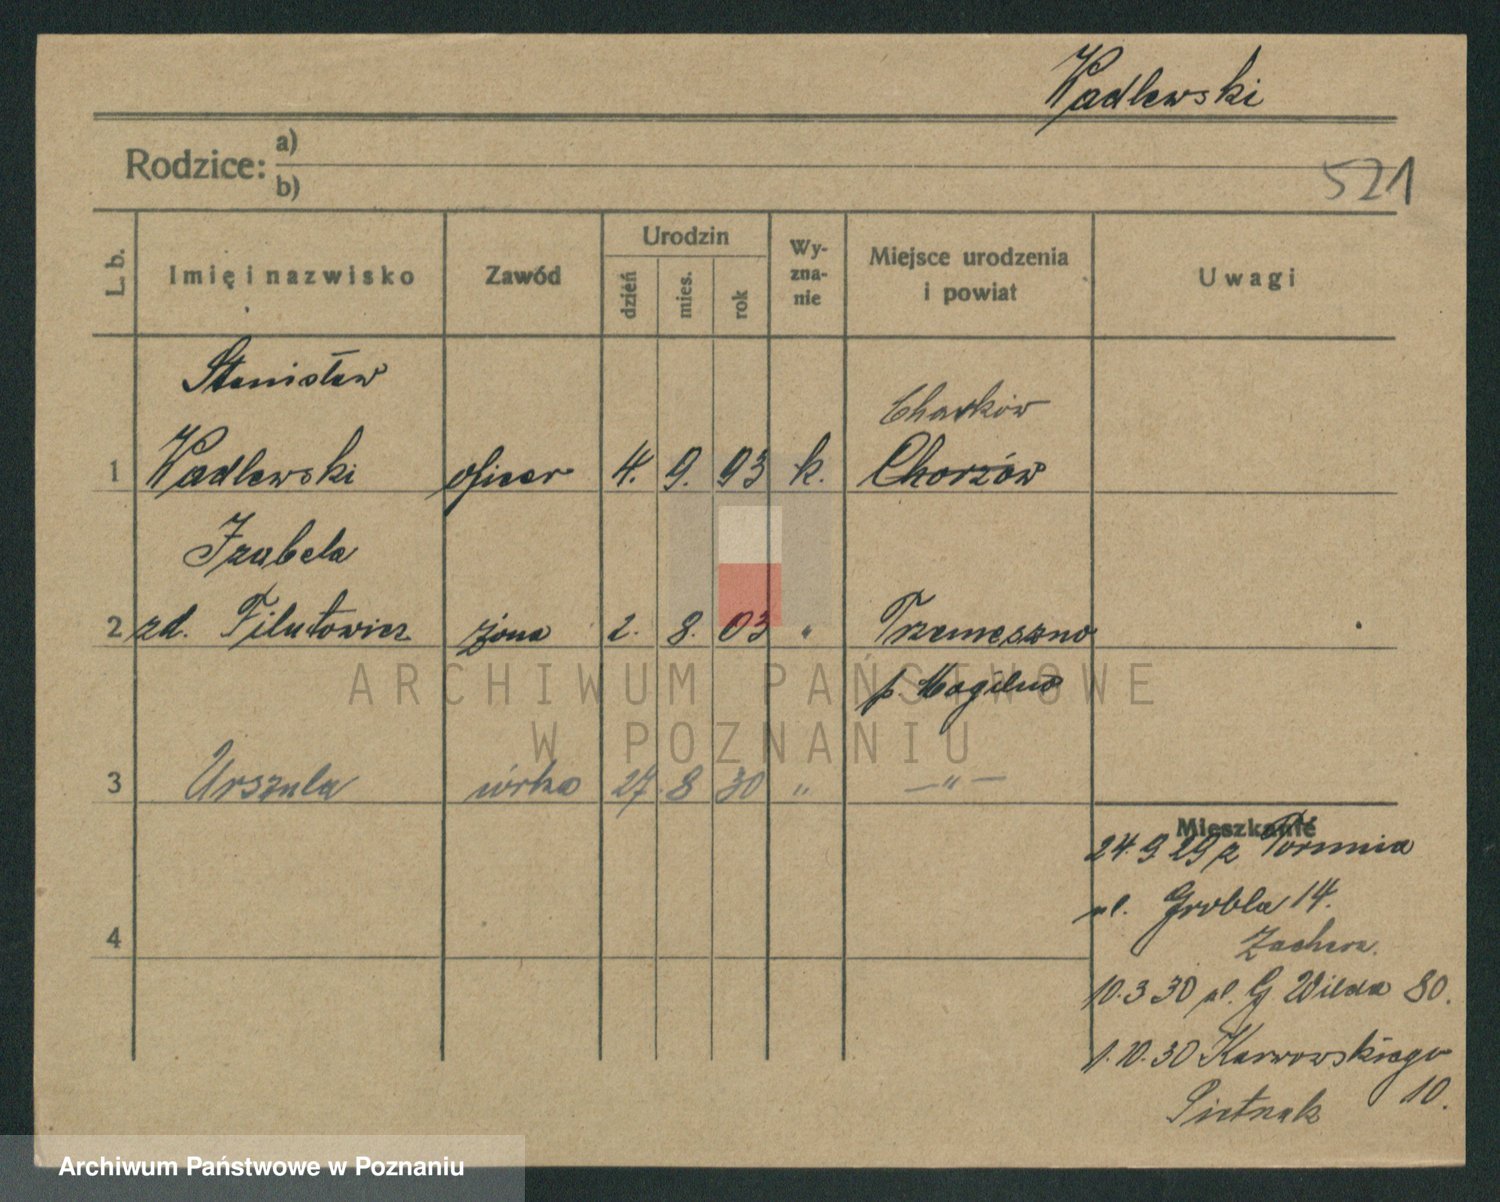 Wadlewski
Rodzice: a)
b)
521
L. b.
Imię i nazwisko
Zawód
Urodzin
dzień
mies.
rok
Wy-
zna-
nie
Miejsce urodzenia
i powiat
Uwagi
Stanisław
Charków
1 Wadlewski oficer 4. 9. 93 k. Chorzów
Izabela
2 zd. Filutowicz żona 2. 8. 03 " Trzemeszno
p. Mogilno
3 Urszula córka 27 8 30 " — " —
Mieszkanie
24. 9 29 z Torunia
ul. Grobla 14.
4
10. 3 30 ul. G Wilda 80.
1. 10. 30 Karwowskiego
10.
ARCHIWUM PAŃSTWOWE
W POZNANIU
Archiwum Państwowe w Poznaniu